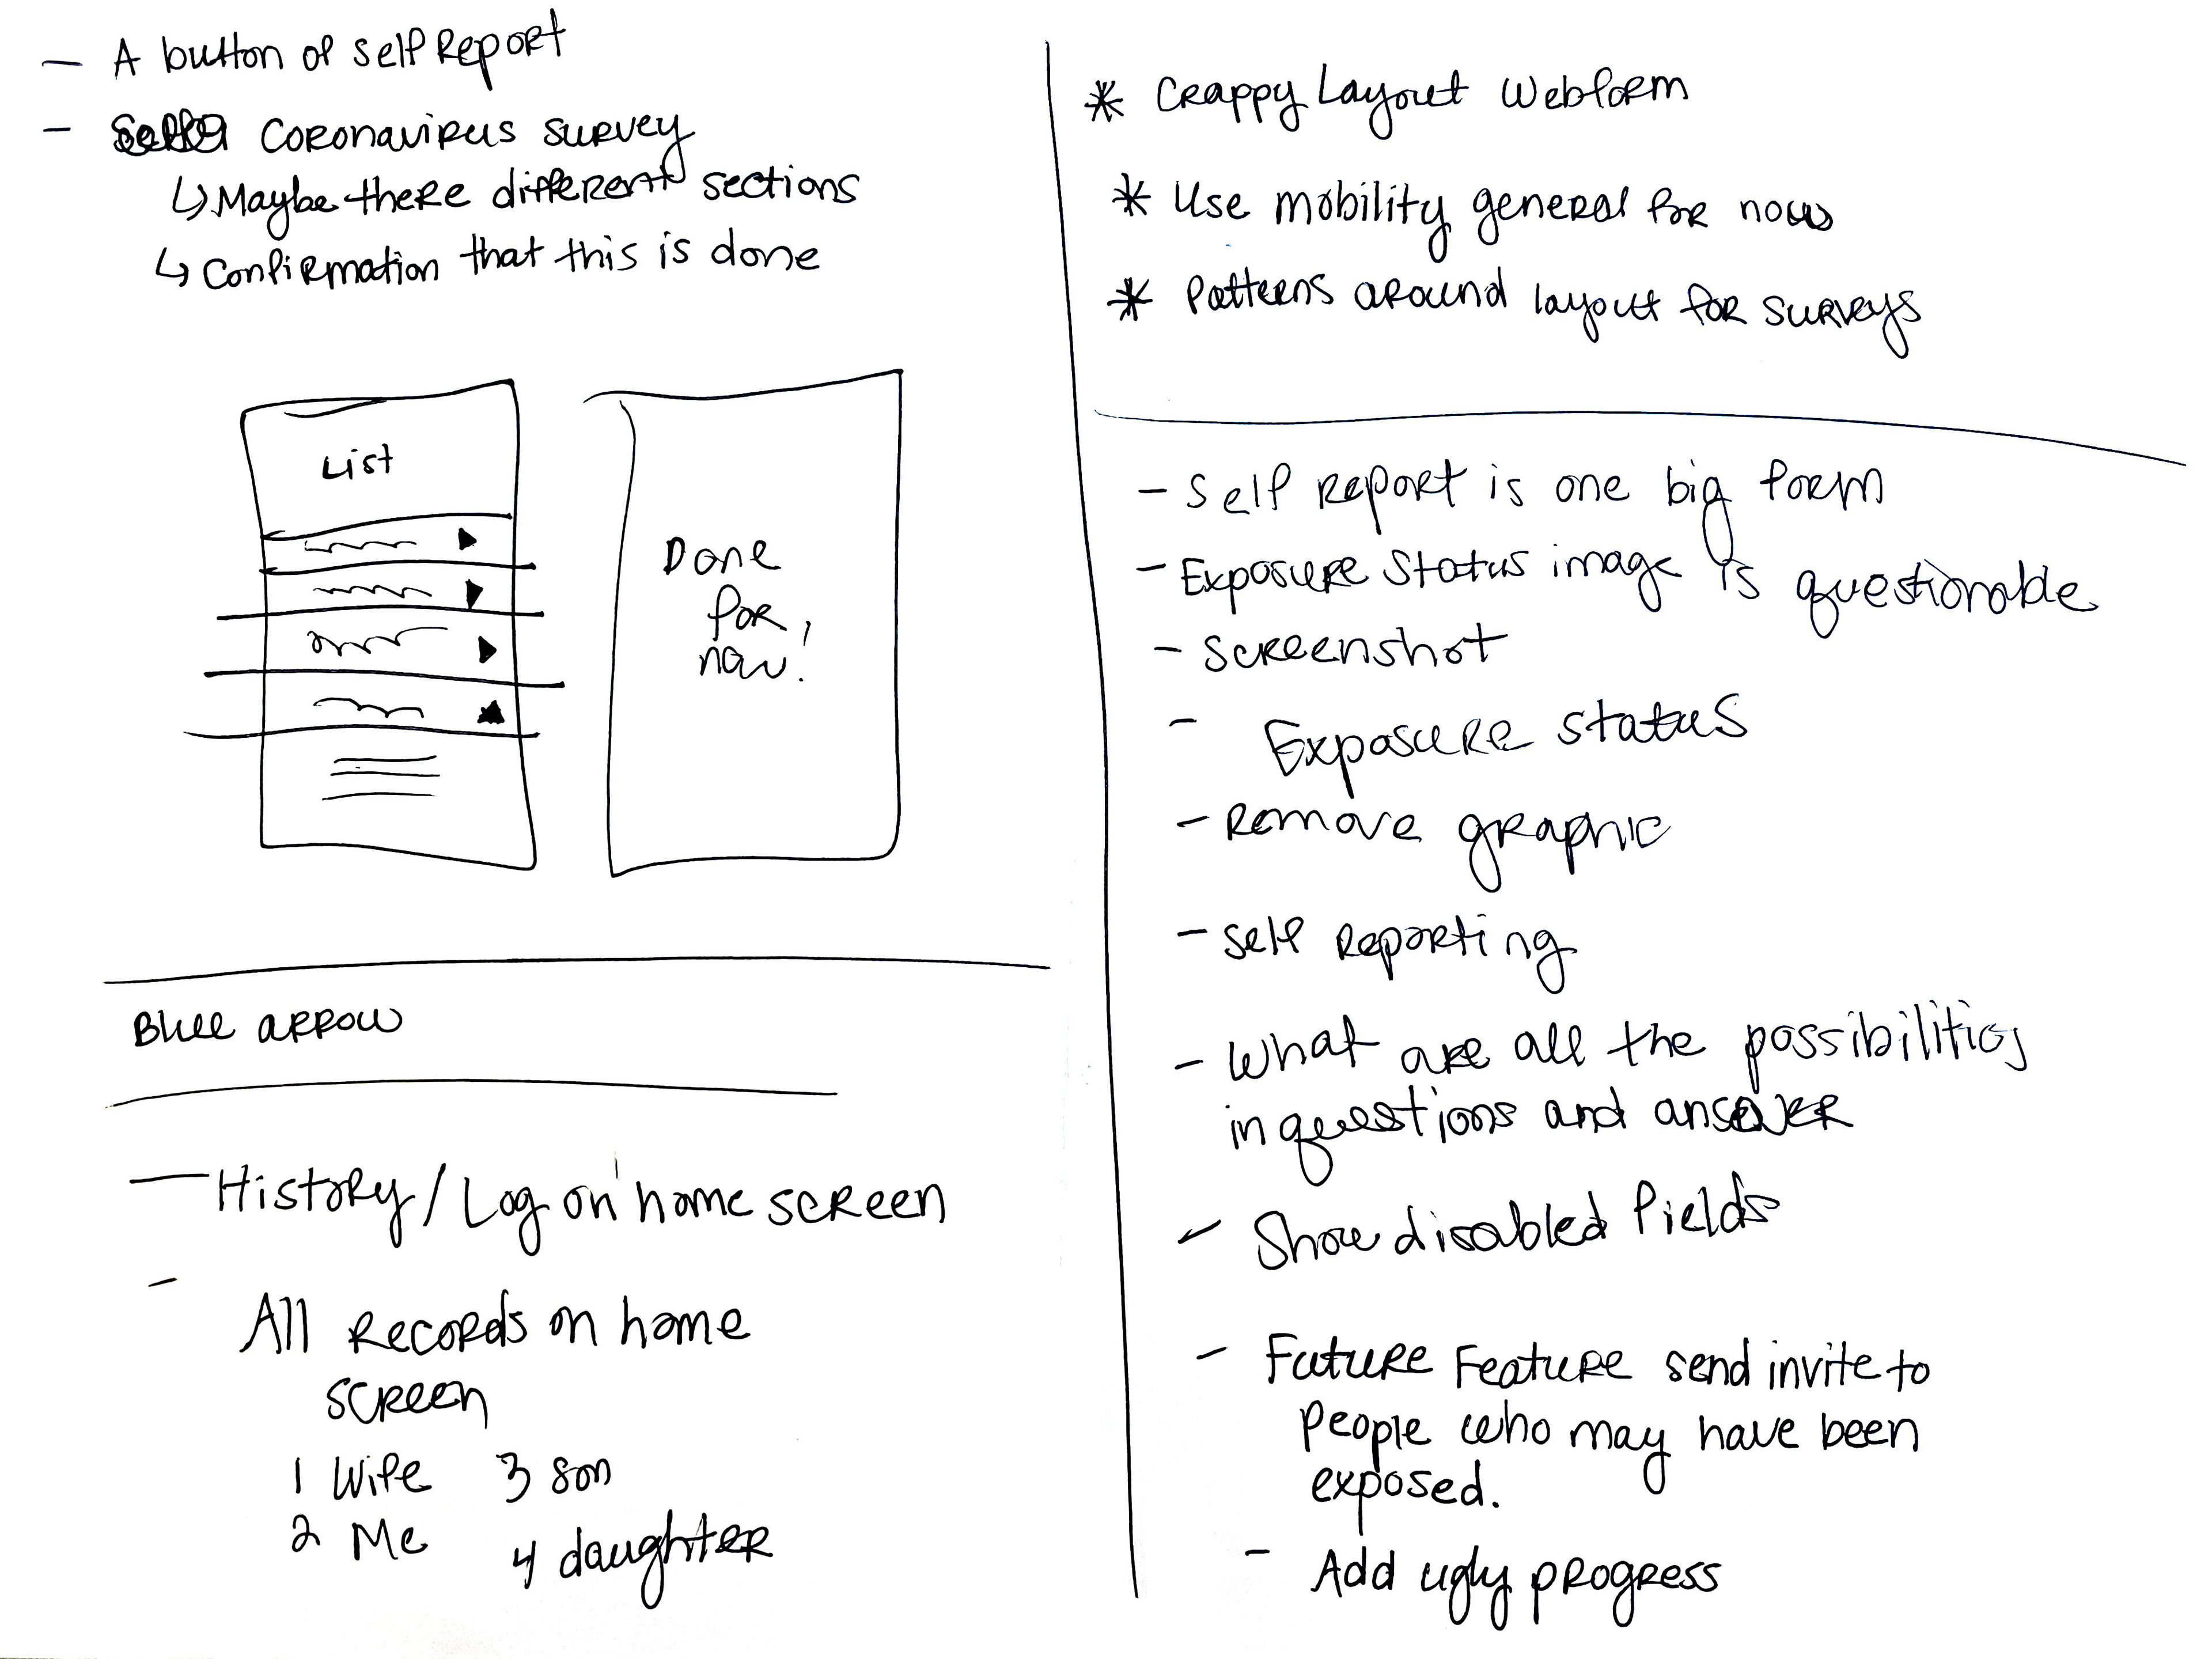 - A button of self Report
- Coronavirus survey
↳ Maybe there different sections
↳ Confirmation that this is done
List
Done
for
now!
Blue arrow
- History / Log on home screen
- All Records on home
screen
1 Wife 3 son
2 Me 4 daughter
* Crappy Layout Webform
* Use mobility general for now
* Patterns around layout for surveys
- Self report is one big form
- Exposure status image is questionable
- Screenshot
- Exposure status
- Remove graphic
- Self Reporting
- What are all the possibilities
in questions and answer
- Show disabled fields
- Future Feature send invite to
people who may have been
exposed.
- Add ugly progress